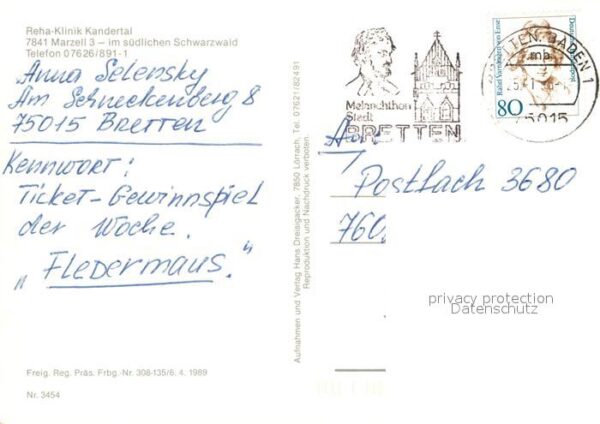 Reha-Klinik Kandertal
7841 Marzell 3 – im südlichen Schwarzwald
Telefon 07626/891-1
Anna Selensky
Am Schneckenberg 8
75015 Bretten
Kennwort:
Ticket-Gewinnspiel
der Woche.
„Fledermaus."
Freig. Reg. Präs. Frbg.-Nr. 308-135/6. 4. 1989
Nr. 3454
Aufnahmen und Verlag Hans Dreisigacker, 7850 Lörrach, Tel. 07621/82491
Reproduktion und Nachdruck verboten.
Melanchthon
Stadt
BRETTEN
BRETTEN, BADEN 1
75015
Rahel Varnhagen von Ense
Deutsche Bundespost
80
An
Postfach 3680
760
privacy protection
Datenschutz